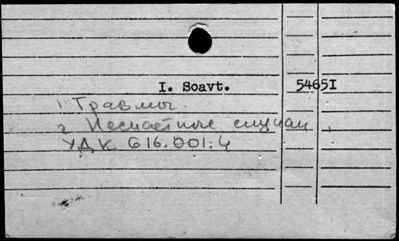 I. Soavt. 5465I
1 Травмы.
2 Несчастные случаи
УДК 616.001.4